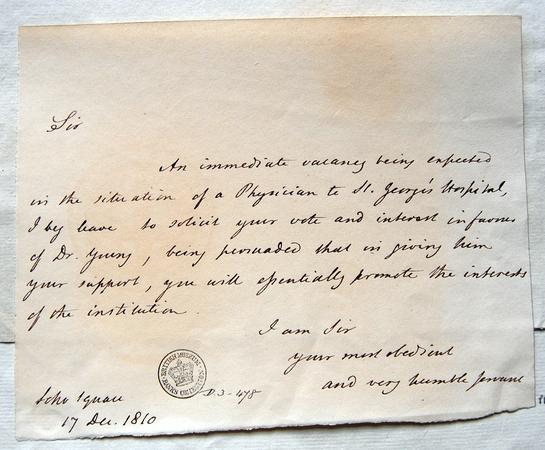 Sir
An immediate vacancy being expected
in the situation of a Physician to St. George's Hospital,
I beg leave to solicit your vote and interest in favour
of Dr. Young, being persuaded that in giving him
your support, you will essentially promote the interests
of the institution.
I am Sir
your most obedient
and very humble Servant
BRITISH MUSEUM
BANKS COLLECTION
D.3-478
Soho Square
17 Dec. 1810